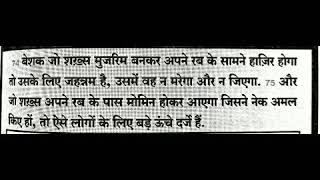 74 बेशक जो शख़्स मुजरिम बनकर अपने रब के सामने हाज़िर होगा
तो उसके लिए जहन्नम है, उसमें वह न मरेगा और न जिएगा. 75 और
जो शख़्स अपने रब के पास मोमिन होकर आएगा जिसने नेक अमल
किए हों, तो ऐसे लोगों के लिए बड़े ऊंचे दर्जे हैं.